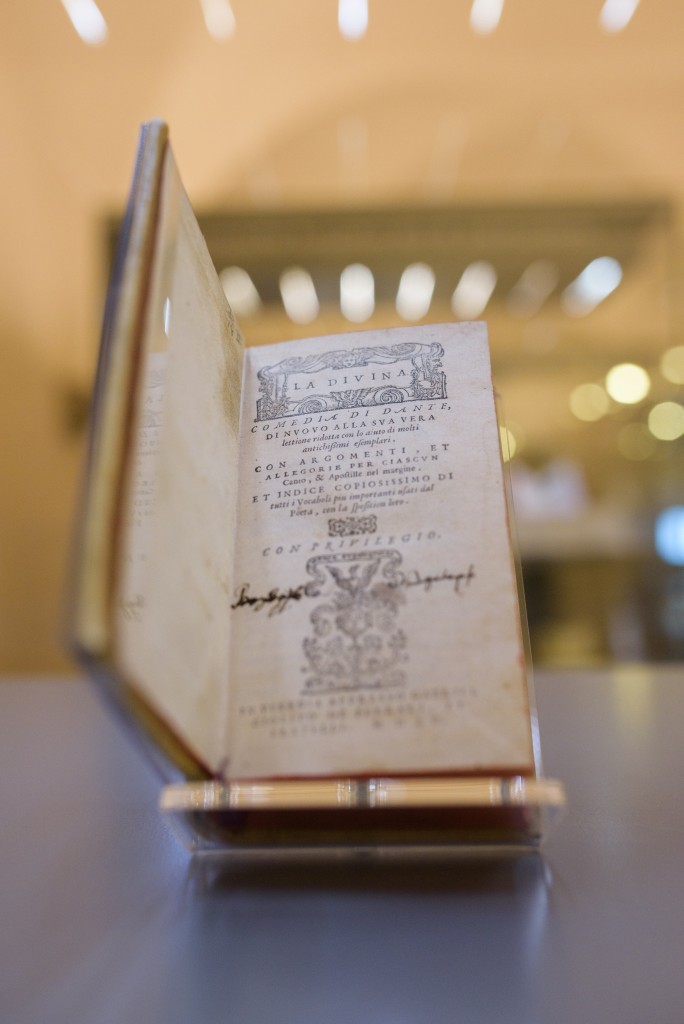 LA DIVINA
COMEDIA DI DANTE,
DI NVOVO ALLA SVA VERA
lettione ridotta con lo aiuto di molti
antichissimi esemplari.
CON ARGOMENTI, ET
ALLEGORIE PER CIASCVN
Canto, & Apostille nel margine.
ET INDICE COPIOSISSIMO DI
tutti i Vocaboli piu importanti usati dal
Poeta, con la spositione loro.
CON PRIVILEGIO.
IN VINEGIA APPRESSO GABRIEL
GIOLITO DE FERRARI, ET
FRATELLI. M D L V.